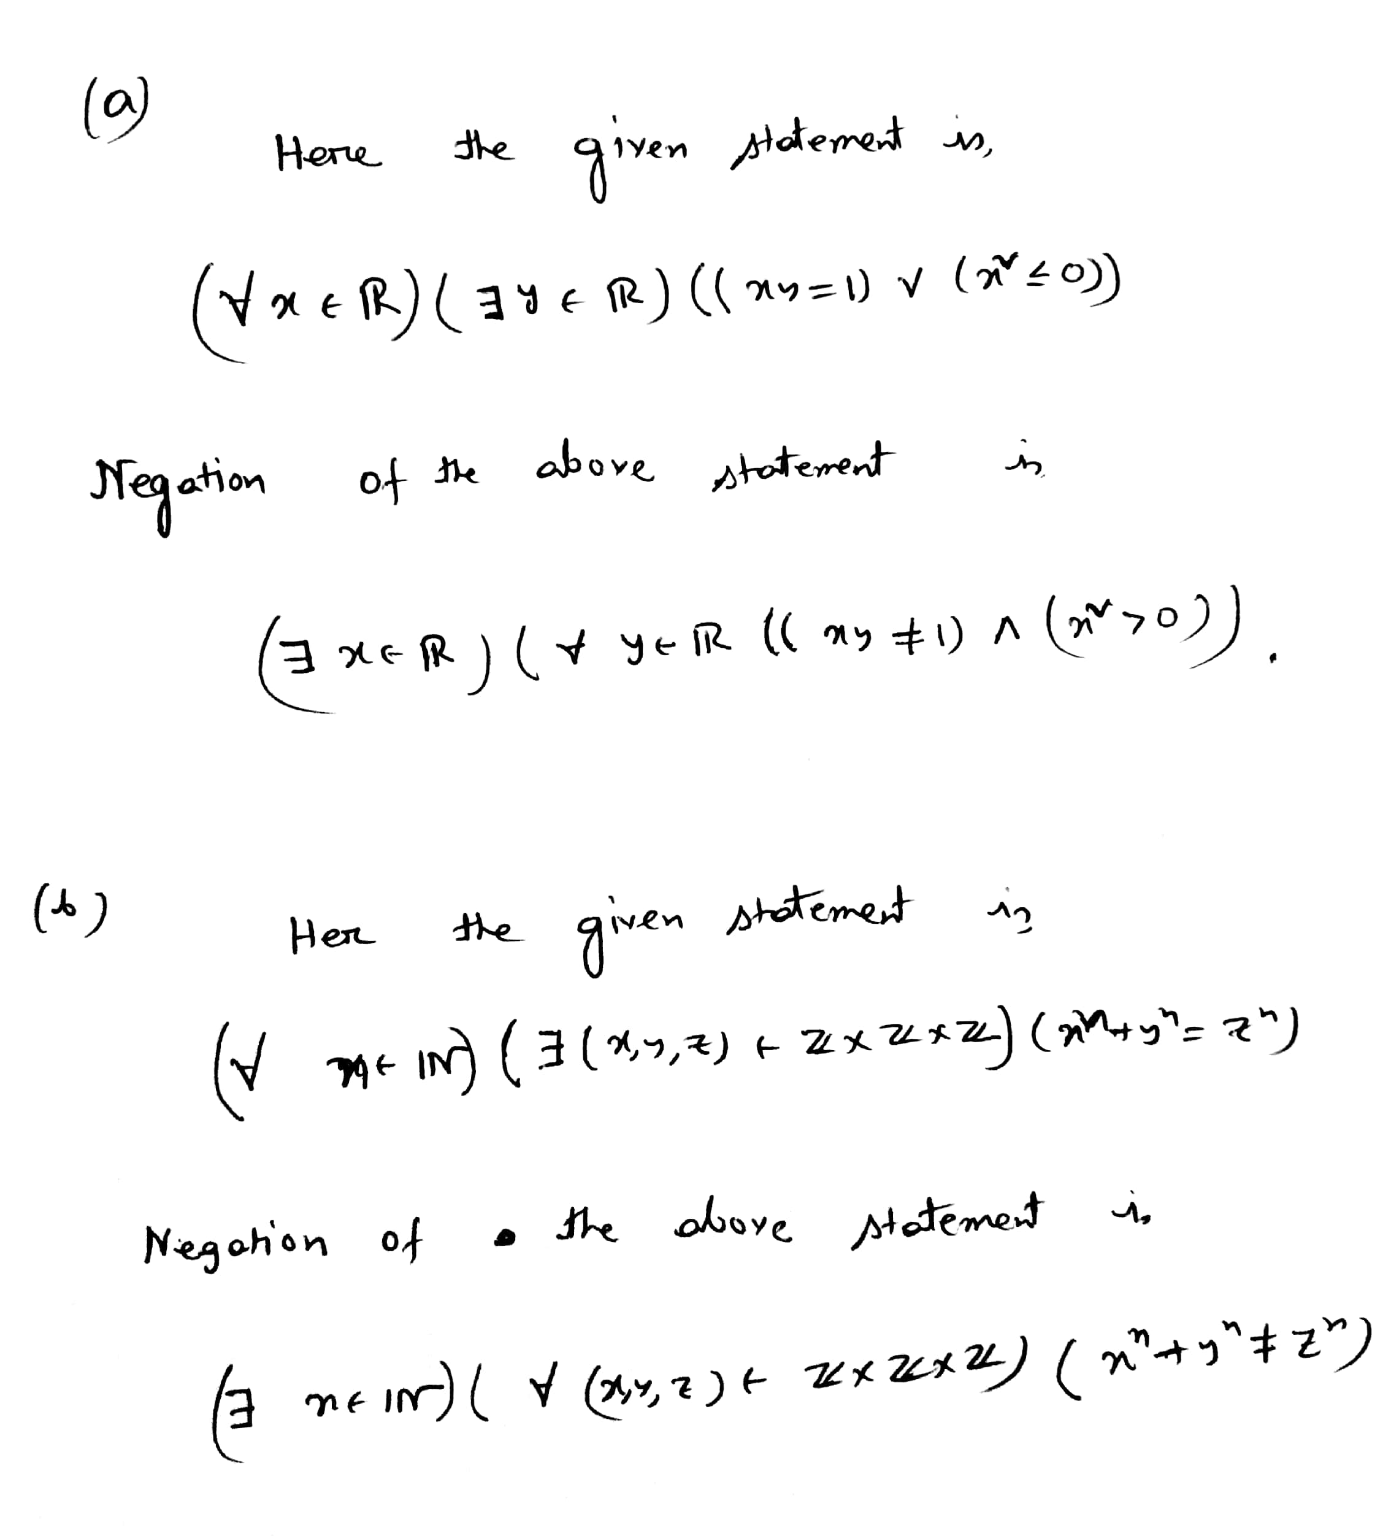 (a)
Here the given statement is,
(∀ x ∈ ℝ) (∃ y ∈ ℝ) ((xy = 1) ∨ (x² ≤ 0))
Negation of the above statement is
(∃ x ∈ ℝ) (∀ y ∈ ℝ ((xy ≠ 1) ∧ (x² > 0)).
(b)
Here the given statement is
(∀ n ∈ ℕ) (∃ (x, y, z) ∈ ℤ × ℤ × ℤ) (xⁿ + yⁿ = zⁿ)
Negation of the above statement is
(∃ n ∈ ℕ) (∀ (x, y, z) ∈ ℤ × ℤ × ℤ) (xⁿ + yⁿ ≠ zⁿ)